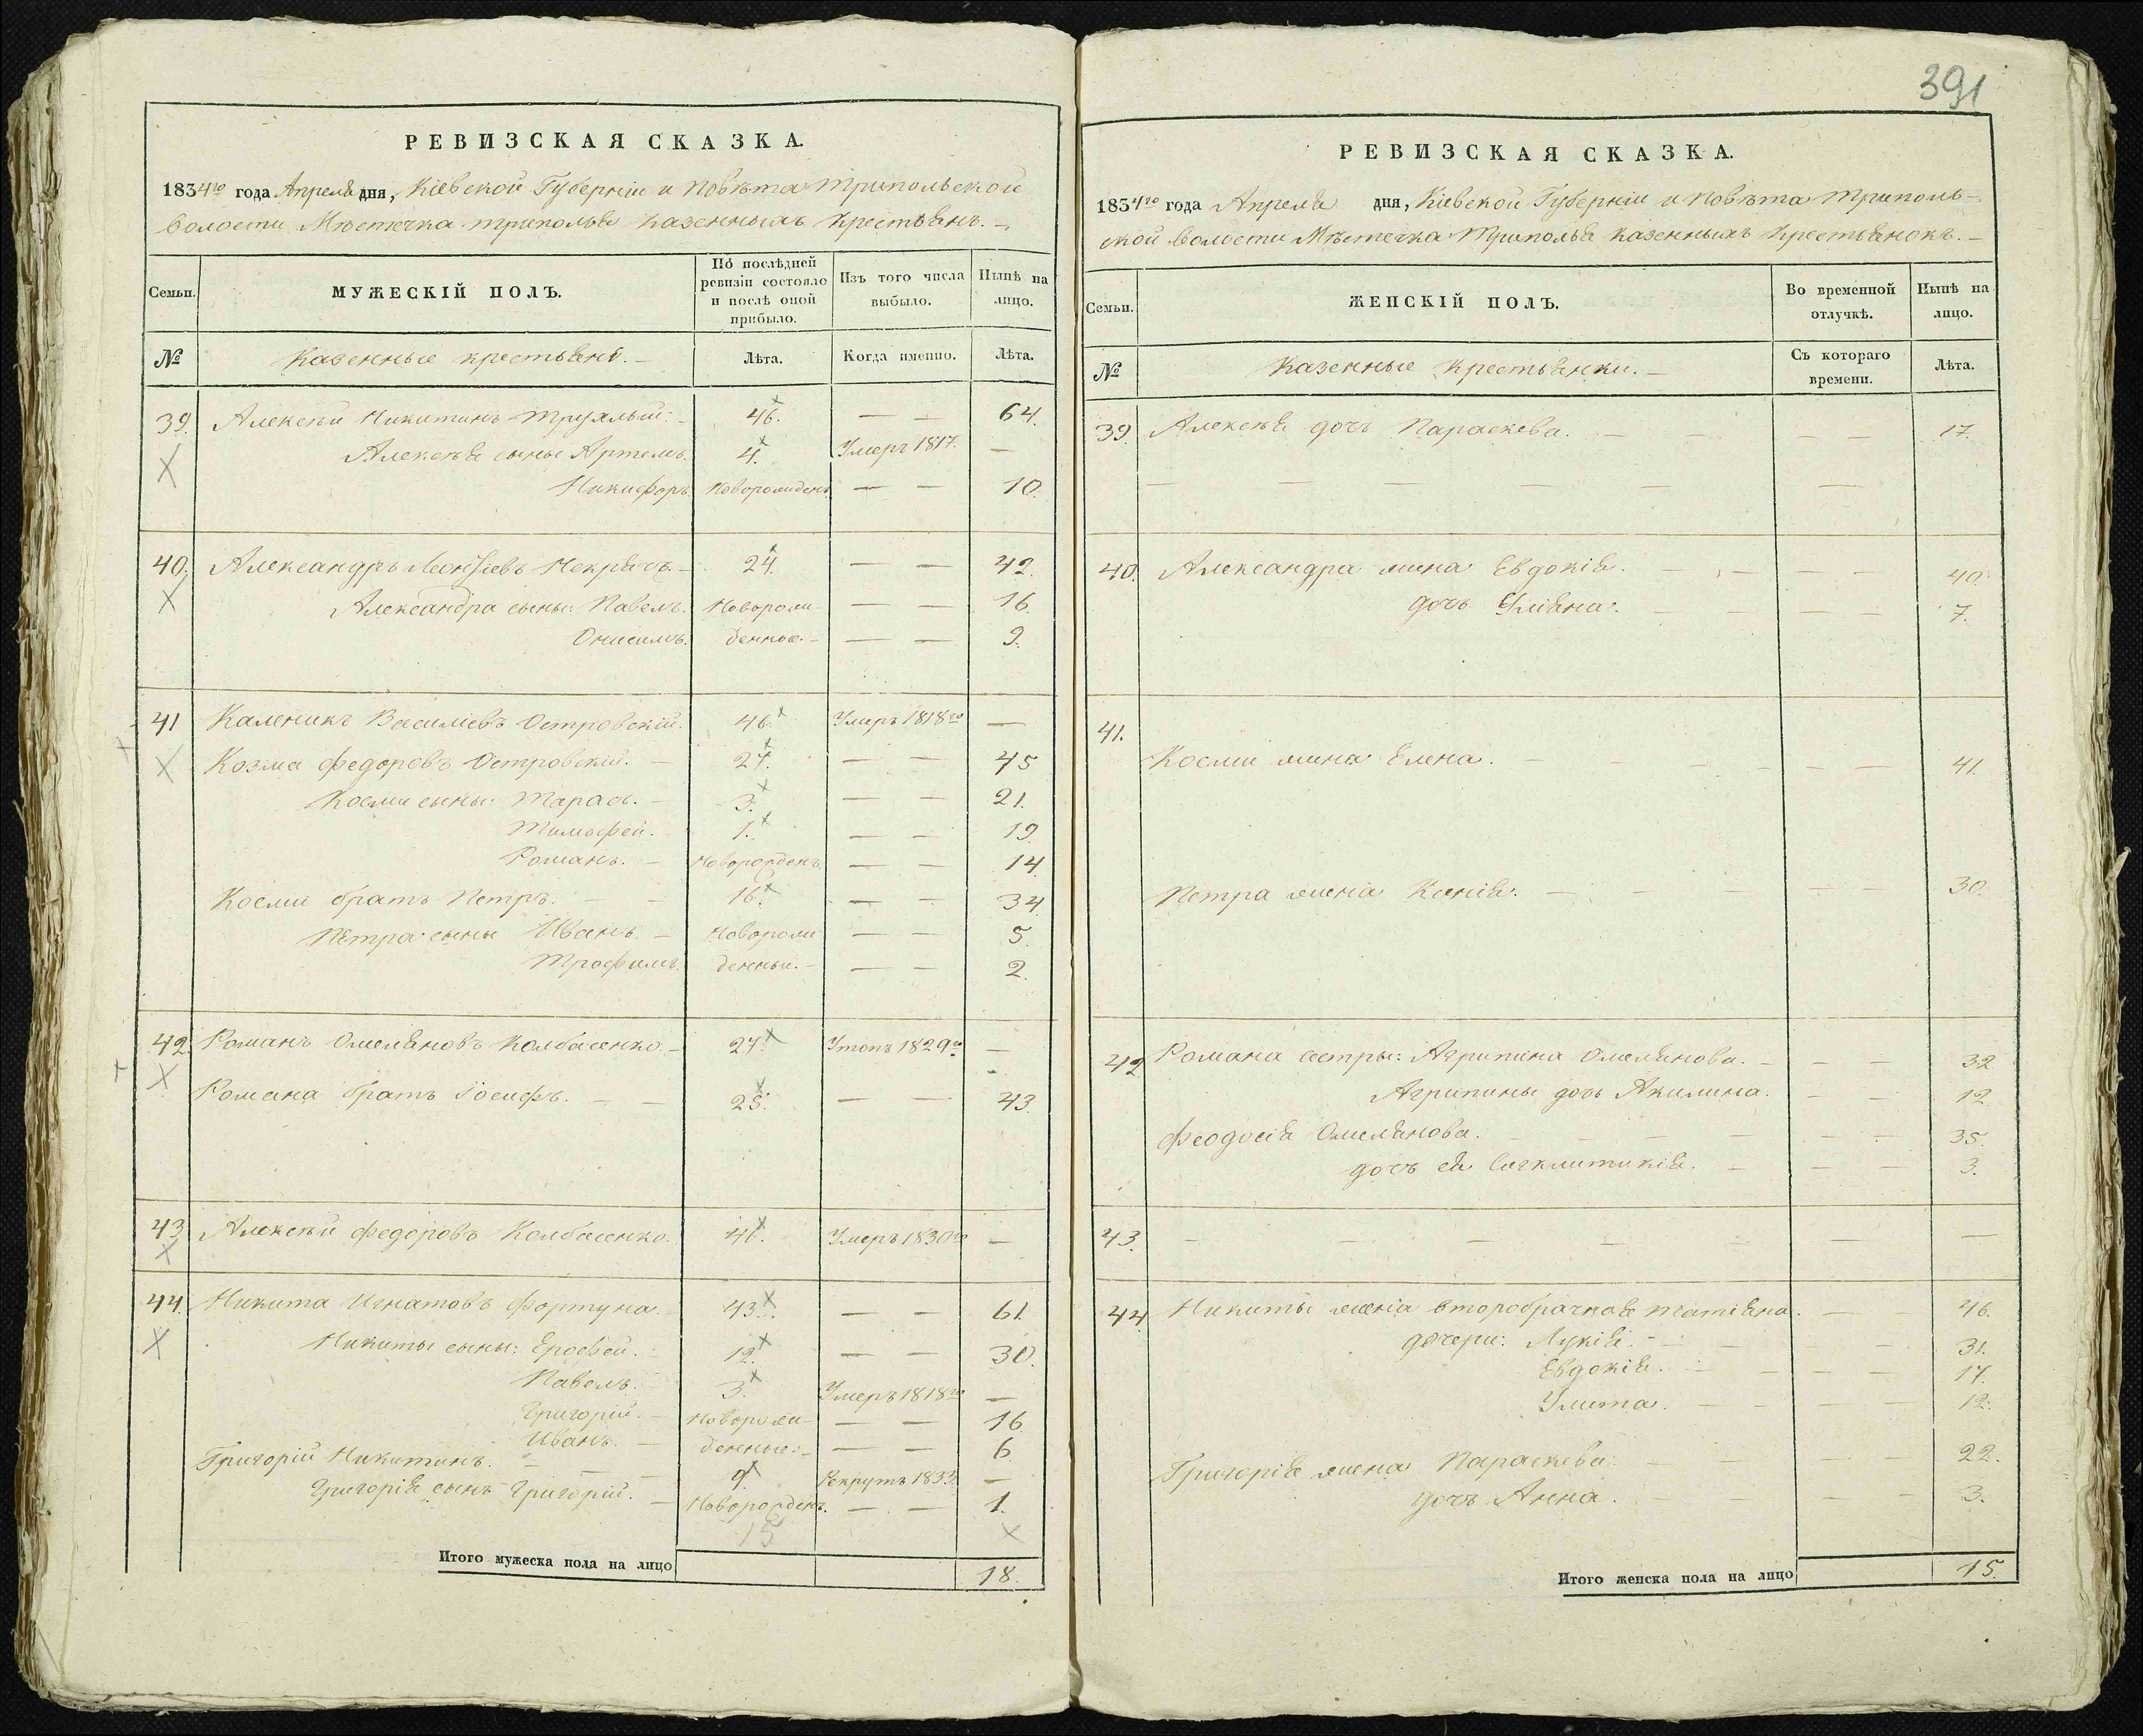 РЕВИЗСКАЯ СКАЗКА.
1834го года Апреля дня, Кіевской Губерніи и Повѣта Трипольской
волости Мѣстечка Триполья казенныхъ крестьянъ.
Семьи.
МУЖЕСКІЙ ПОЛЪ.
По послѣдней ревизіи состояло и послѣ оной прибыло.
Изъ того числа выбыло.
Нынѣ на лицо.
№ Казенные крестьяне. Лѣта. Когда именно. Лѣта.
39. Алексѣй Никитинъ 46. — — 64.
Алексѣя сыны Артемъ. 4. Умеръ 1817. —
Никифоръ Новорожденъ — — 10.
40. Александръ Леонтіевъ Некрячъ. 24. — — 42.
Александра сыны: Павелъ. Новорож- — — 16.
Онисимъ. денные. — — 9.
41 Каленикъ Васильевъ Островскій. 46. Умеръ 1818го —
Козма Федоровъ Островскій. 27. — — 45
Косми сыны: Тарасъ. 3. — — 21.
Тимофей. 1. — — 19.
Романъ. Новорожденъ — — 14.
Косми братъ Петръ. 16. — — 34.
Петра сыны Иванъ. Новорож — — 5.
Трофимъ. денные. — — 2.
42. Романъ Омеляновъ Колбасенко. 27. Утопъ 1829го —
Романа братъ Іосифъ. 25. — — 43.
43. Алексѣй Федоровъ Колбасенко. 46. Умеръ 1830го —
44. Никита Игнатовъ Фортуна. 43. — — 61.
Никиты сыны: Ерофей. 12. — — 30.
Павелъ. 3. Умеръ 1818го —
Григорій. Новорож- — — 16
Иванъ. денные. — — 6.
Григорій Никитинъ. 9. Рекрутъ 1833. —
Григорія сынъ Григорій. Новорожденъ. — — 1.
15
Итого мужеска пола на лицо 18.
391
РЕВИЗСКАЯ СКАЗКА.
1834го года Апреля дня, Кіевской Губерніи и Повѣта Триполь-
ской волости Мѣстечка Триполья казенныхъ крестьянокъ.
Семьи.
ЖЕНСКІЙ ПОЛЪ.
Во временной отлучкѣ.
Нынѣ на лицо.
№ Казенные крестьянки. Съ котораго времени. Лѣта.
39. Алексѣя дочь Параскева. — — 17.
40. Александра жена Евдокія. — — 40.
дочь Уліяна. — — 7.
41.
Косми жена Елена. — — 41.
Петра жена Ксенія. — — 30.
42. Романа сестры: Агрипина Омелянова. — — 32
Агрипины дочь Акилина. — — 12
Феодосія Омелянова. — — 35.
дочь ея Сигклитикія. — — 3.
43. — — —
44. Никиты жена второбрачная Татіяна. — — 46.
дочери: Лукія. — — 31.
Евдокія. — — 17.
Улита. — — 12.
Григорія жена Параскева. — — 22.
дочь Анна. — — 3.
Итого женска пола на лицо 15.